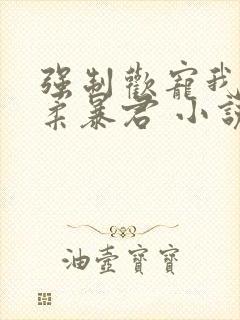 強制歡寵我
柔暴君 小說
油壺寶寶